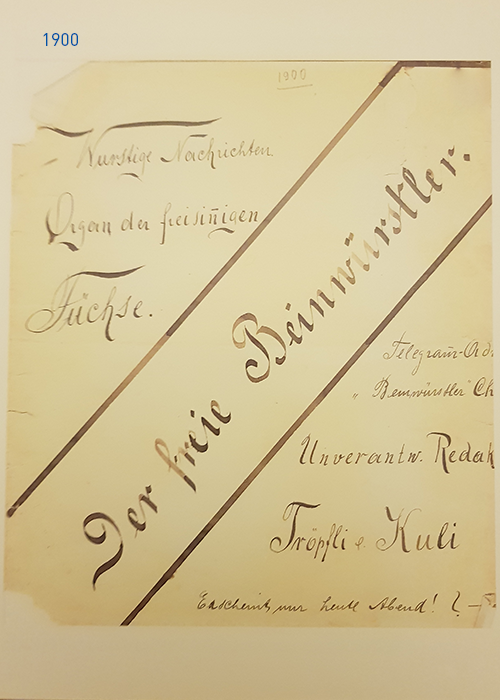 1900
1900
Wurstige Nachrichten
Organ der freisiñigen
Füchse.
Der freie Beinwürstler.
Telegram̄-Ad
„Beinwürstler" Ch
Unverantw. Redak
Tröpfli e. Kuli
Erscheint nur heute Abend!